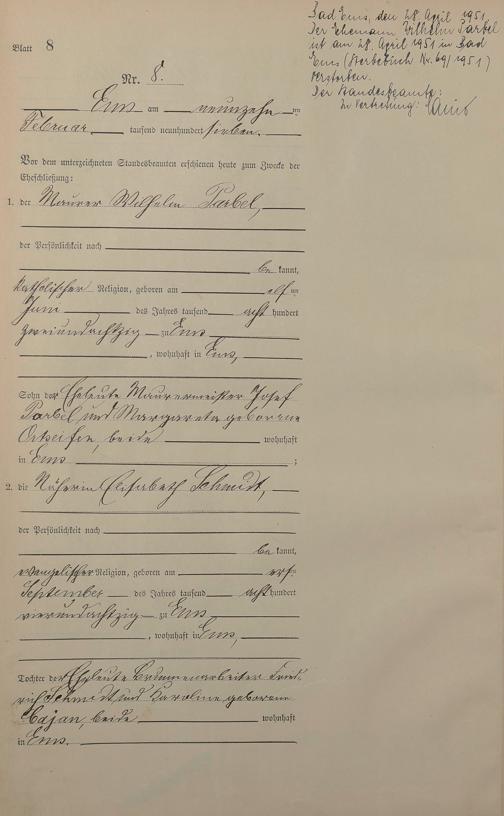 Bad Ems, den 28. April 1951
Der Ehemann Wilhelm Parbel
ist am 28. April 1951 in Bad
Ems (Sterbebuch Nr. 69/1951)
verstorben.
Der Standesbeamte:
In Vertretung:
Blatt 8
Nr. 8.
Ems am neunzehn ten
Februar tausend neunhundert sieben.
Vor dem unterzeichneten Standesbeamten erschienen heute zum Zwecke der
Eheschließung:
1. der Maurer Wilhelm Parbel,
der Persönlichkeit nach
be kannt,
katholischer Religion, geboren am elf ten
Juni des Jahres tausend acht hundert
zweiundachtzig zu Ems
, wohnhaft in Ems,
Sohn der Eheleute Maurermeister Josef
Parbel und Margareta geborene
beide wohnhaft
in Ems ;
2. die Näherin Elisabeth Schmidt,
der Persönlichkeit nach
be kannt,
evangelischer Religion, geboren am
September des Jahres tausend acht hundert
vierundachtzig zu Ems
, wohnhaft in Ems,
Tochter der Eheleute Brunnenarbeiter Fried-
rich Schmidt und Karoline geborene
Cajan, beide wohnhaft
in Ems.